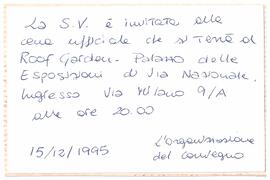 La S.V. é invitata alla
cena ufficiale che si terrà al
Roof Garden - Palazzo delle
Esposizioni di Via Nazionale.
Ingresso Via Milano 9/A
alle ore 20.00
L'organizzazione
15/12/1995 del convegno